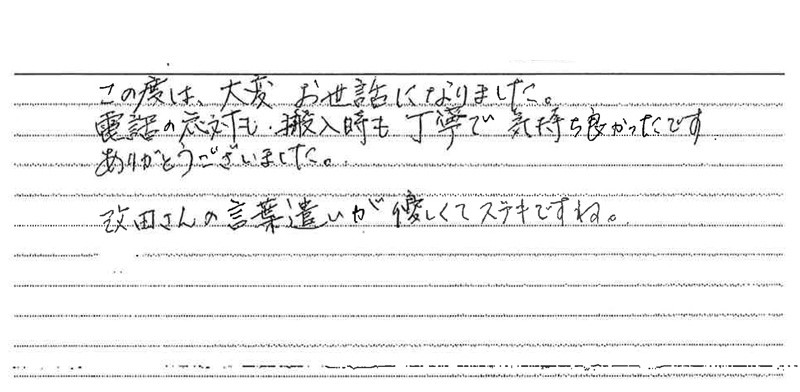 この度は、大変 お世話になりました。
電話の応対も、搬入時も 丁寧で 気持ち良かったです
ありがとうございました。
改田さんの言葉遣いが 優しくてステキですね。